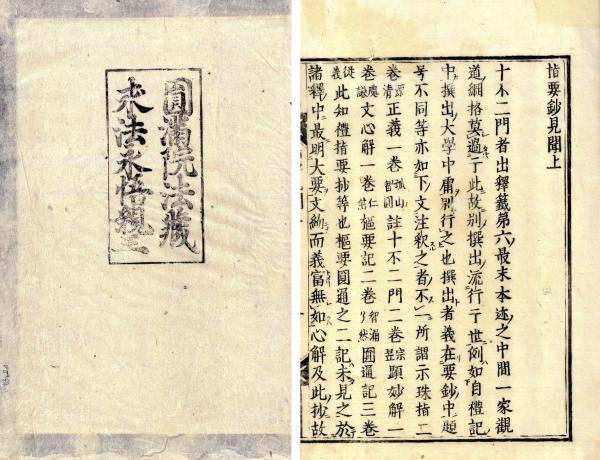 圓滿院法藏
末法永悟親王
指要鈔見聞上
十不二門者出釋籤第六最末本迹之中間一家觀
道綱格莫過于此故別撰出流行于世例如自禮記
中撰出大學中庸別行之也撰出者義在要鈔中題
号不同等亦如下文注釈之者不一所謂示珠指二
卷源清正義一卷孤山智圓註十不二門二卷宗翌顕妙解一
卷處謙文心解一卷仁岳樞要記二卷智涌了然圓通記三卷
從義此知禮指要抄等也樞要圓通之二記未見之於
諸釋中最明大要文約而義富無如心解及此抄故